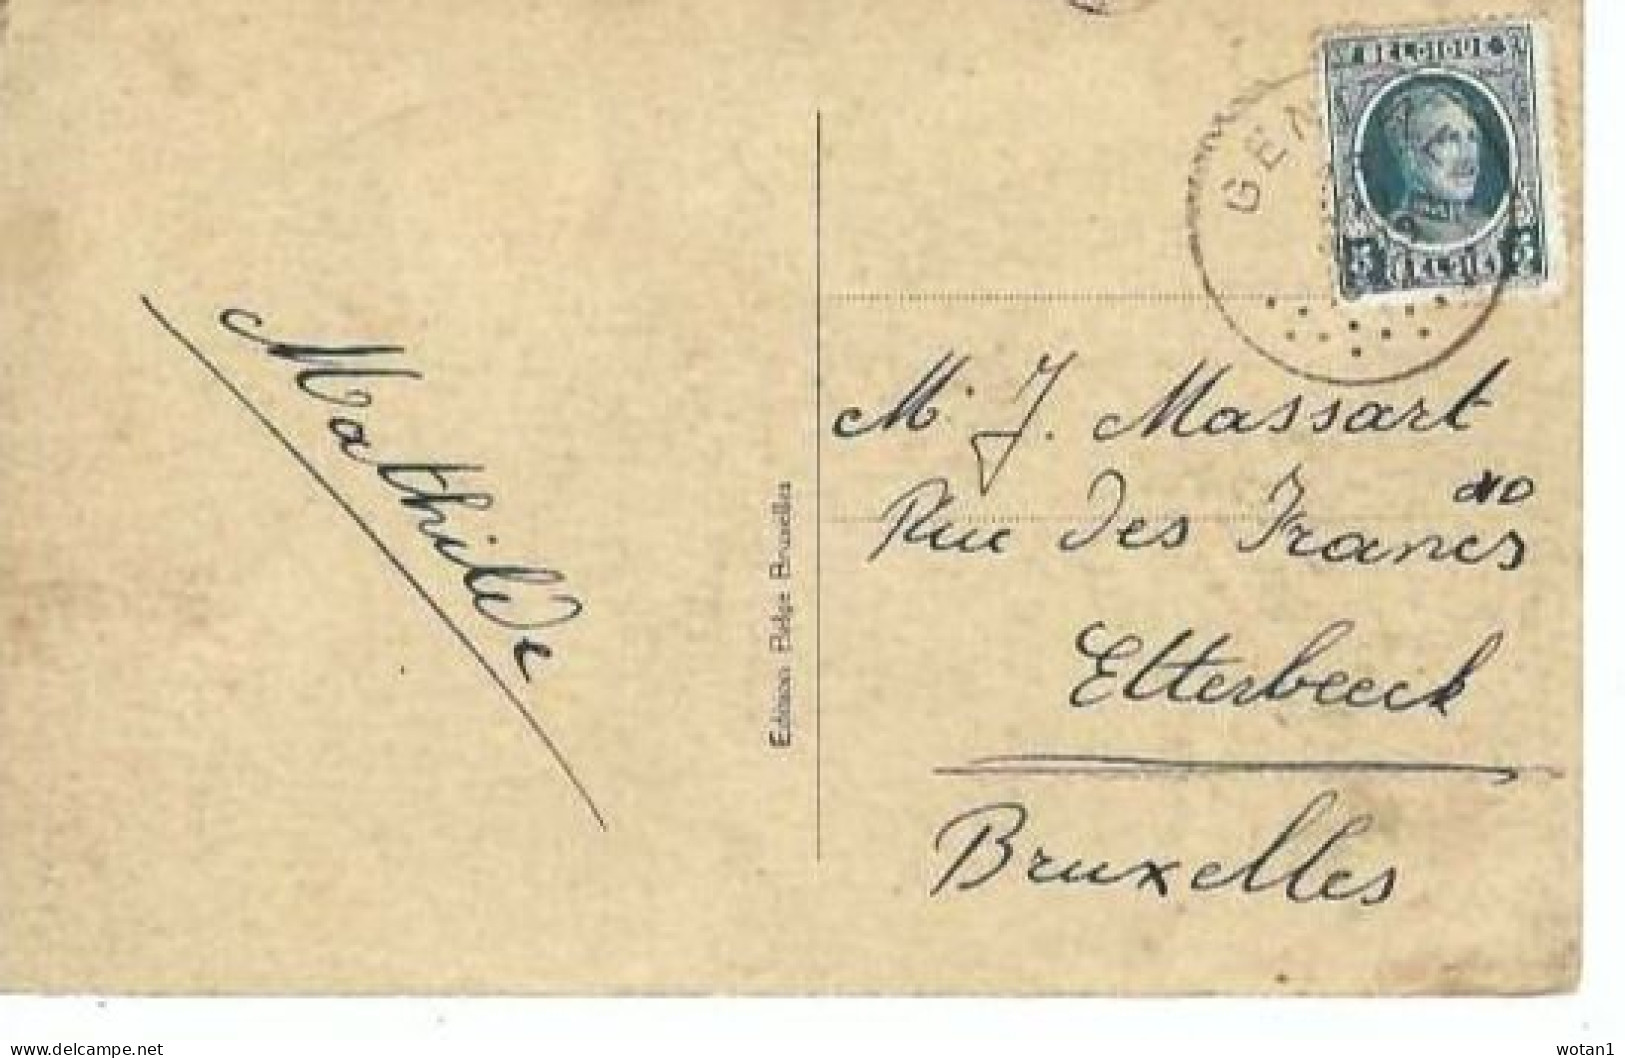 BELGIQUE
5 BELGIË 5
Mathilde
Edition Belge Bruxelles
Mr J. Massart
Rue des Francs
Etterbeeck
Bruxelles
www.delcampe.net
wotan1